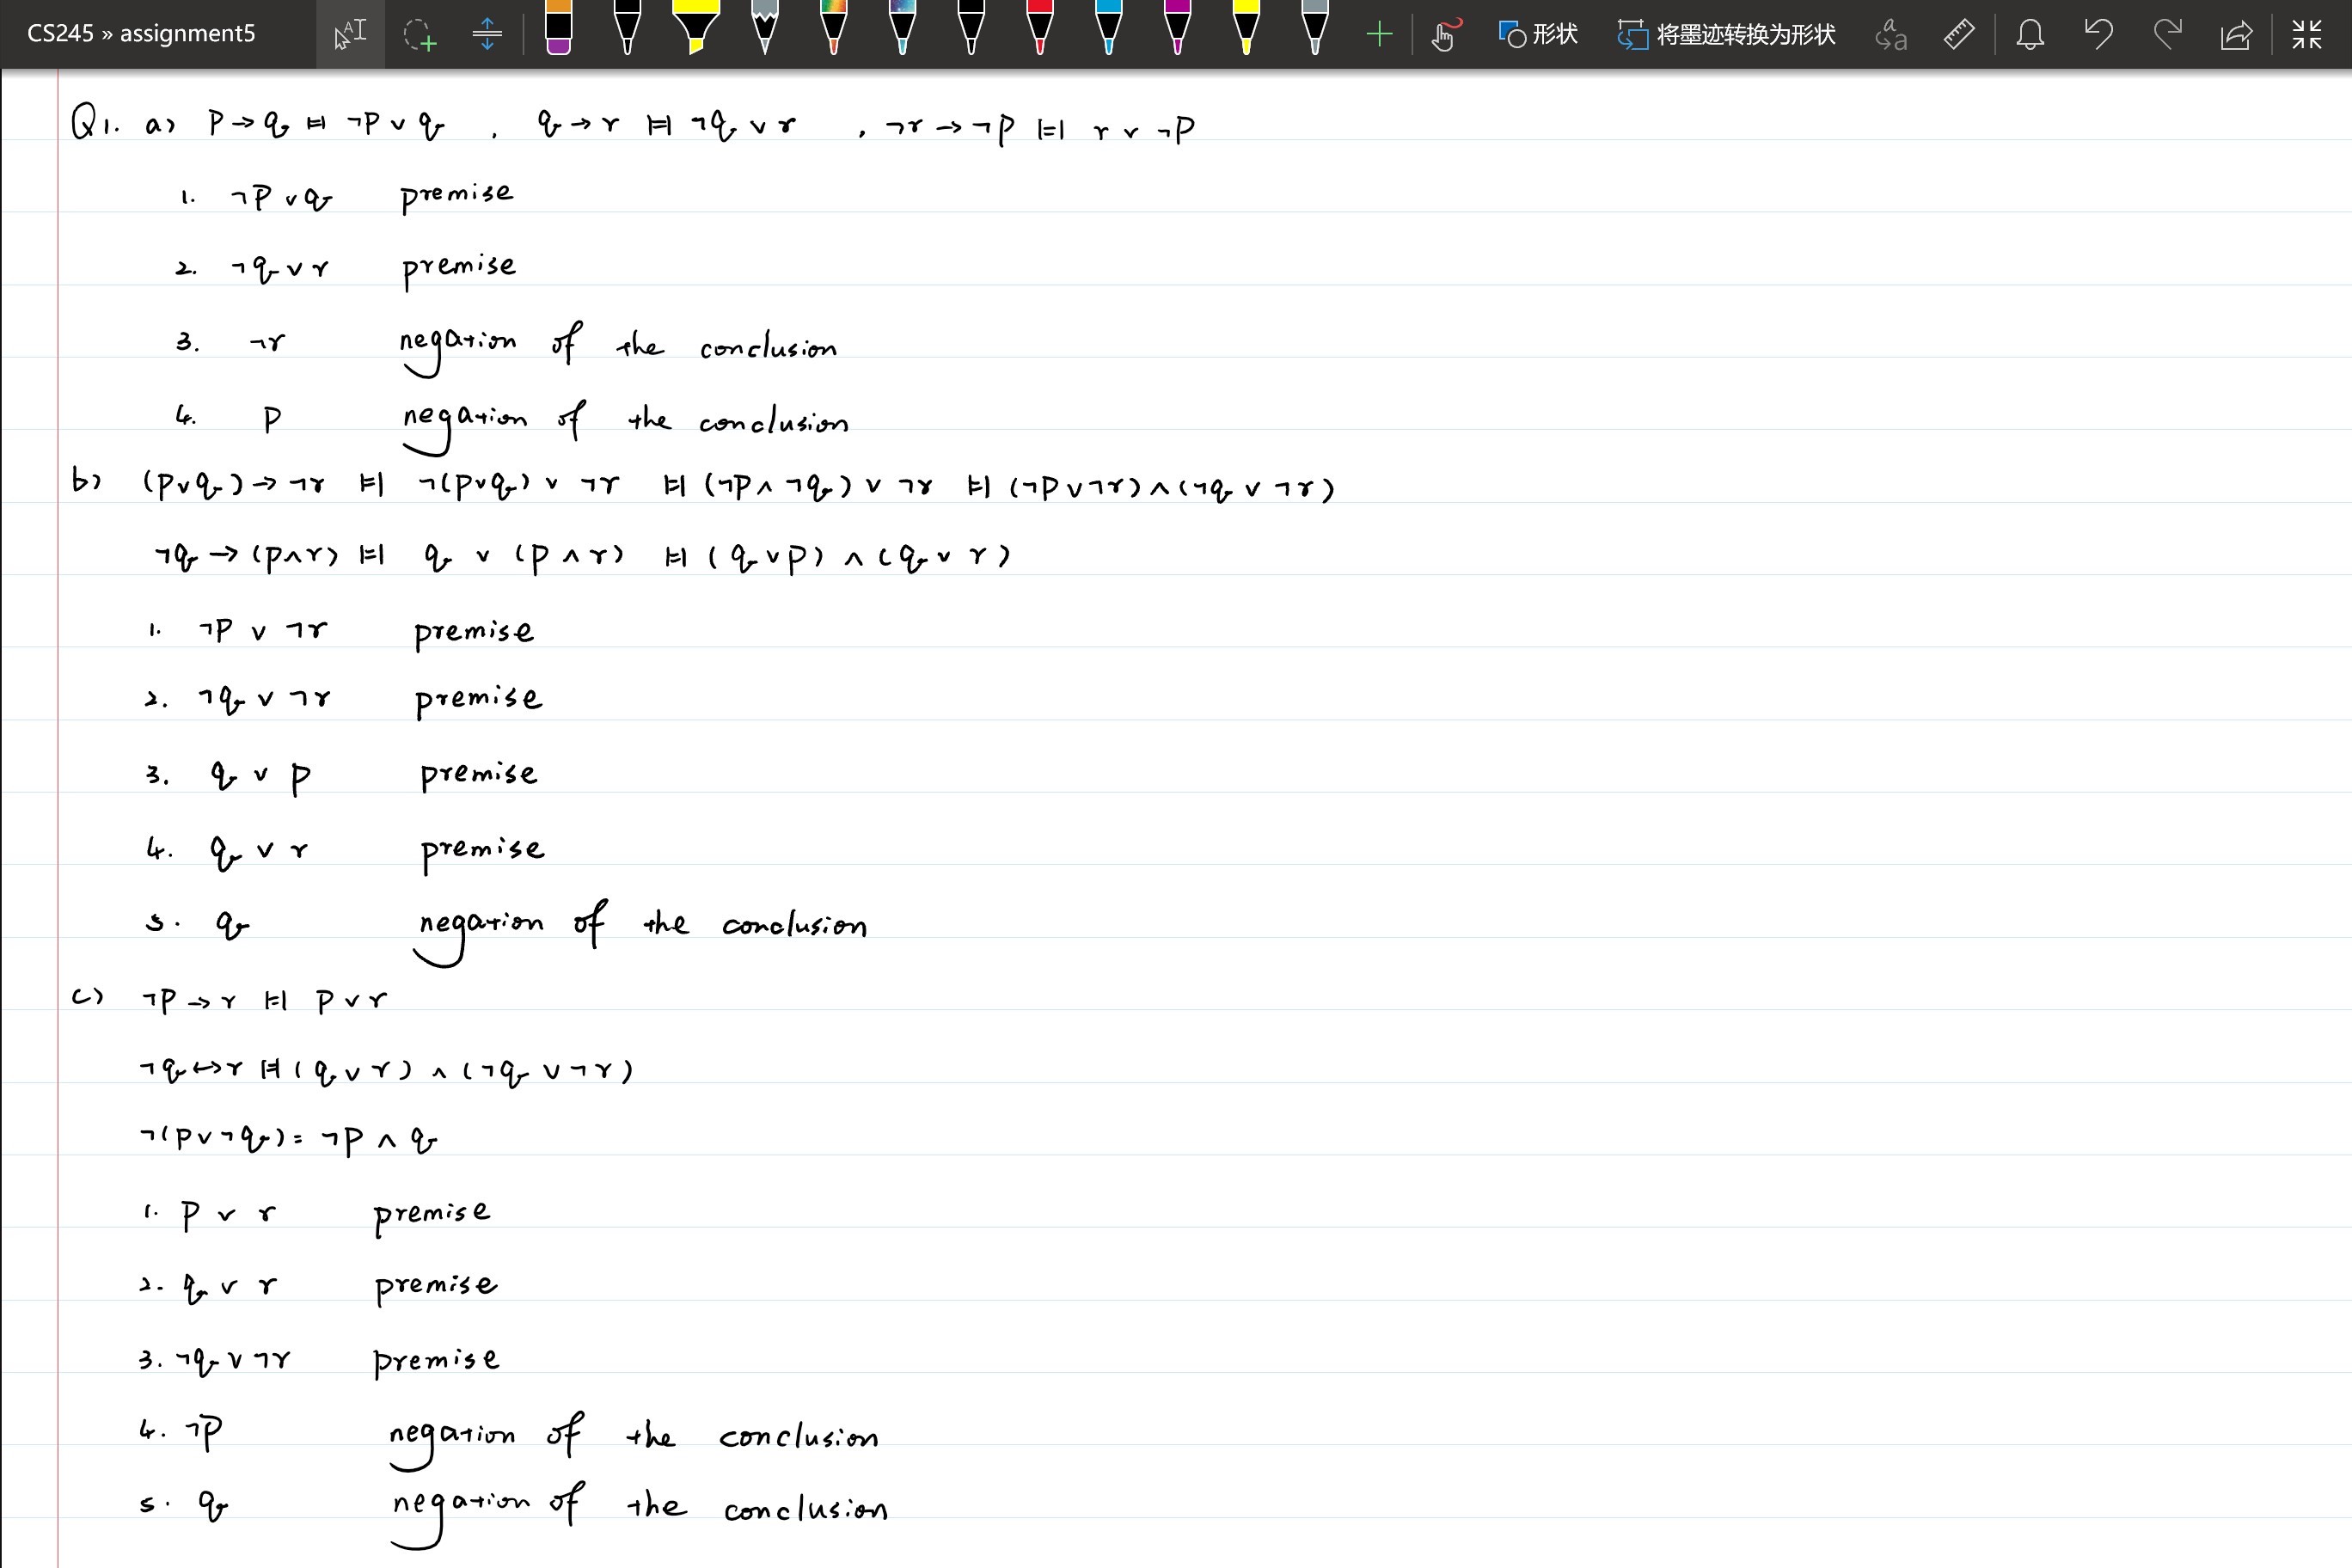 CS245 » assignment5 形状 将墨迹转换为形状
Q1. a) P→q ⊨⊣ ¬P∨q , q→r ⊨⊣ ¬q∨r , ¬r→¬P ⊨⊣ r∨¬P
1. ¬P∨q premise
2. ¬q∨r premise
3. ¬r negation of the conclusion
4. P negation of the conclusion
b) (P∨q)→¬r ⊨⊣ ¬(P∨q)∨¬r ⊨⊣ (¬P∧¬q)∨¬r ⊨⊣ (¬P∨¬r)∧(¬q∨¬r)
¬q→(P∧r) ⊨⊣ q∨(P∧r) ⊨⊣ (q∨P)∧(q∨r)
1. ¬P∨¬r premise
2. ¬q∨¬r premise
3. q∨P premise
4. q∨r premise
5. q negation of the conclusion
c) ¬P→r ⊨⊣ P∨r
¬q↔r ⊨⊣ (q∨r)∧(¬q∨¬r)
¬(P∨¬q)= ¬P∧q
1. P∨r premise
2. q∨r premise
3. ¬q∨¬r premise
4. ¬P negation of the conclusion
5. q negation of the conclusion